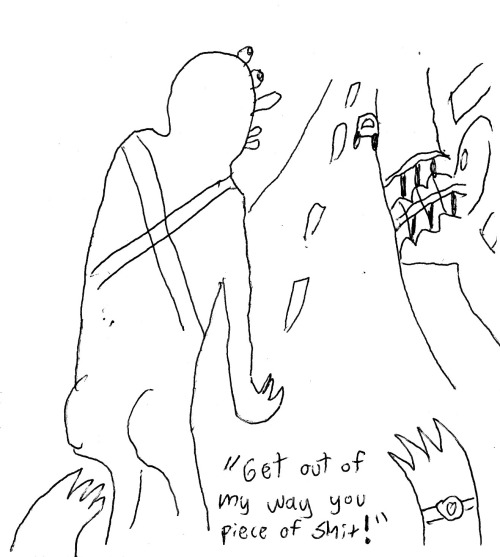 "Get out of
my way you
piece of shit!"